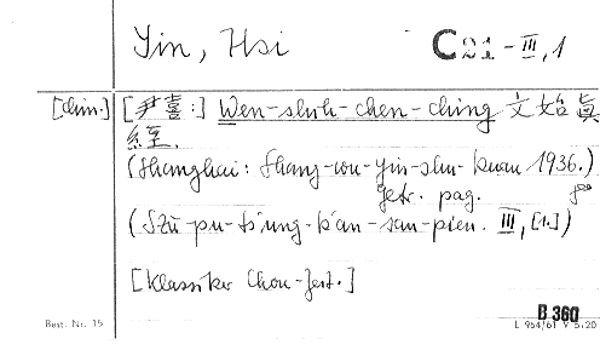 Yin, Hsi
C 21 - III, 1
[chin.] [尹喜:] Wen-shih-chen-ching 文始真
經.
(Shanghai: Shang-wu-yin-shu-kuan 1936.)
getr. pag. 8°
(Szŭ-pu-ts'ung-k'an-san-pien. III, [1.])
[Klassiker Chou-Zeit.]
B 360
Best. Nr. 15 L 964/61 V 5.20